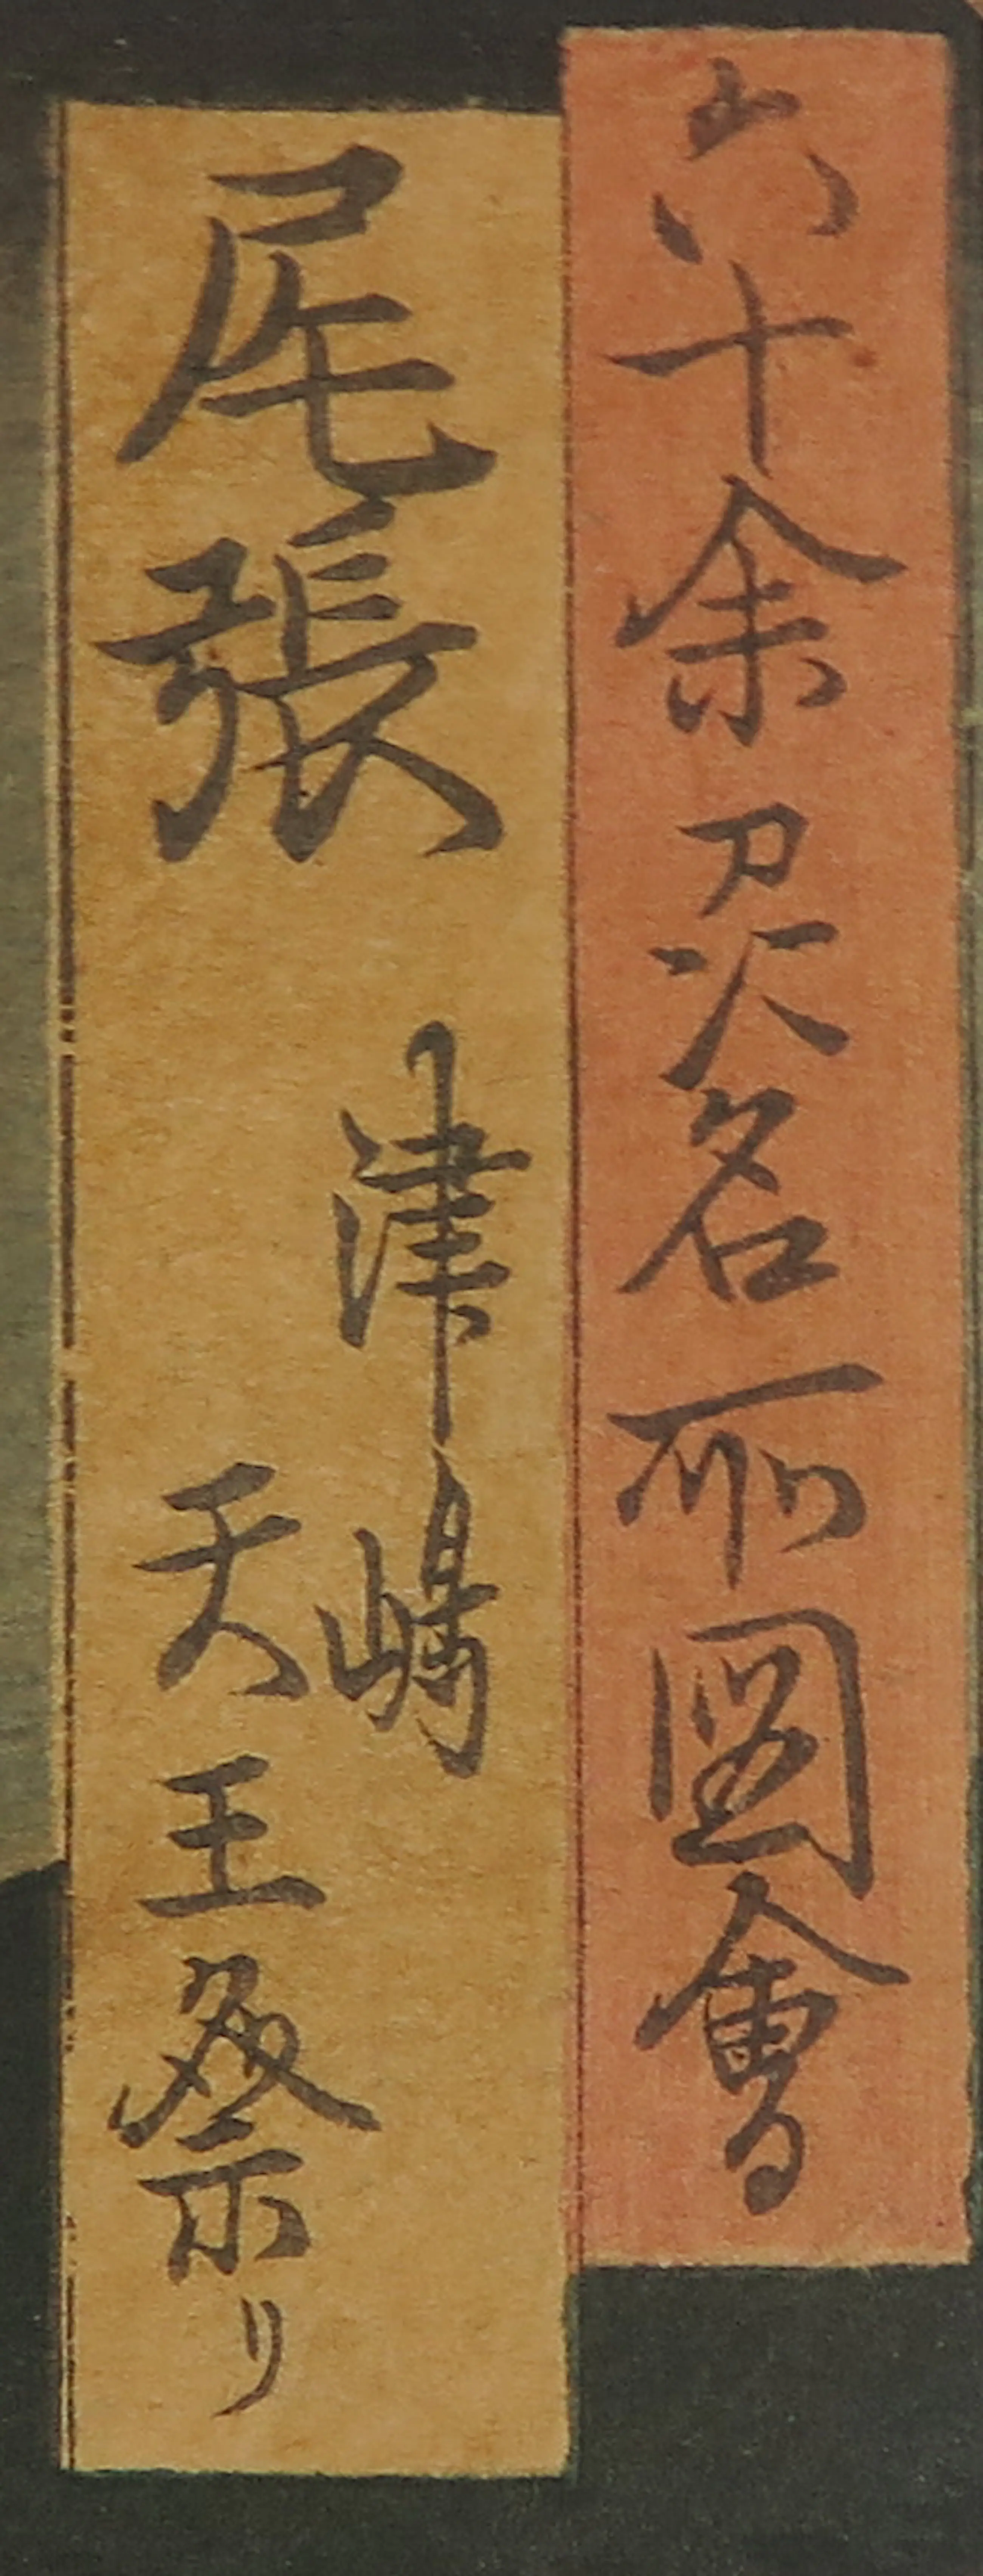 六十余州名所圖會
尾張
津嶋
天王祭リ